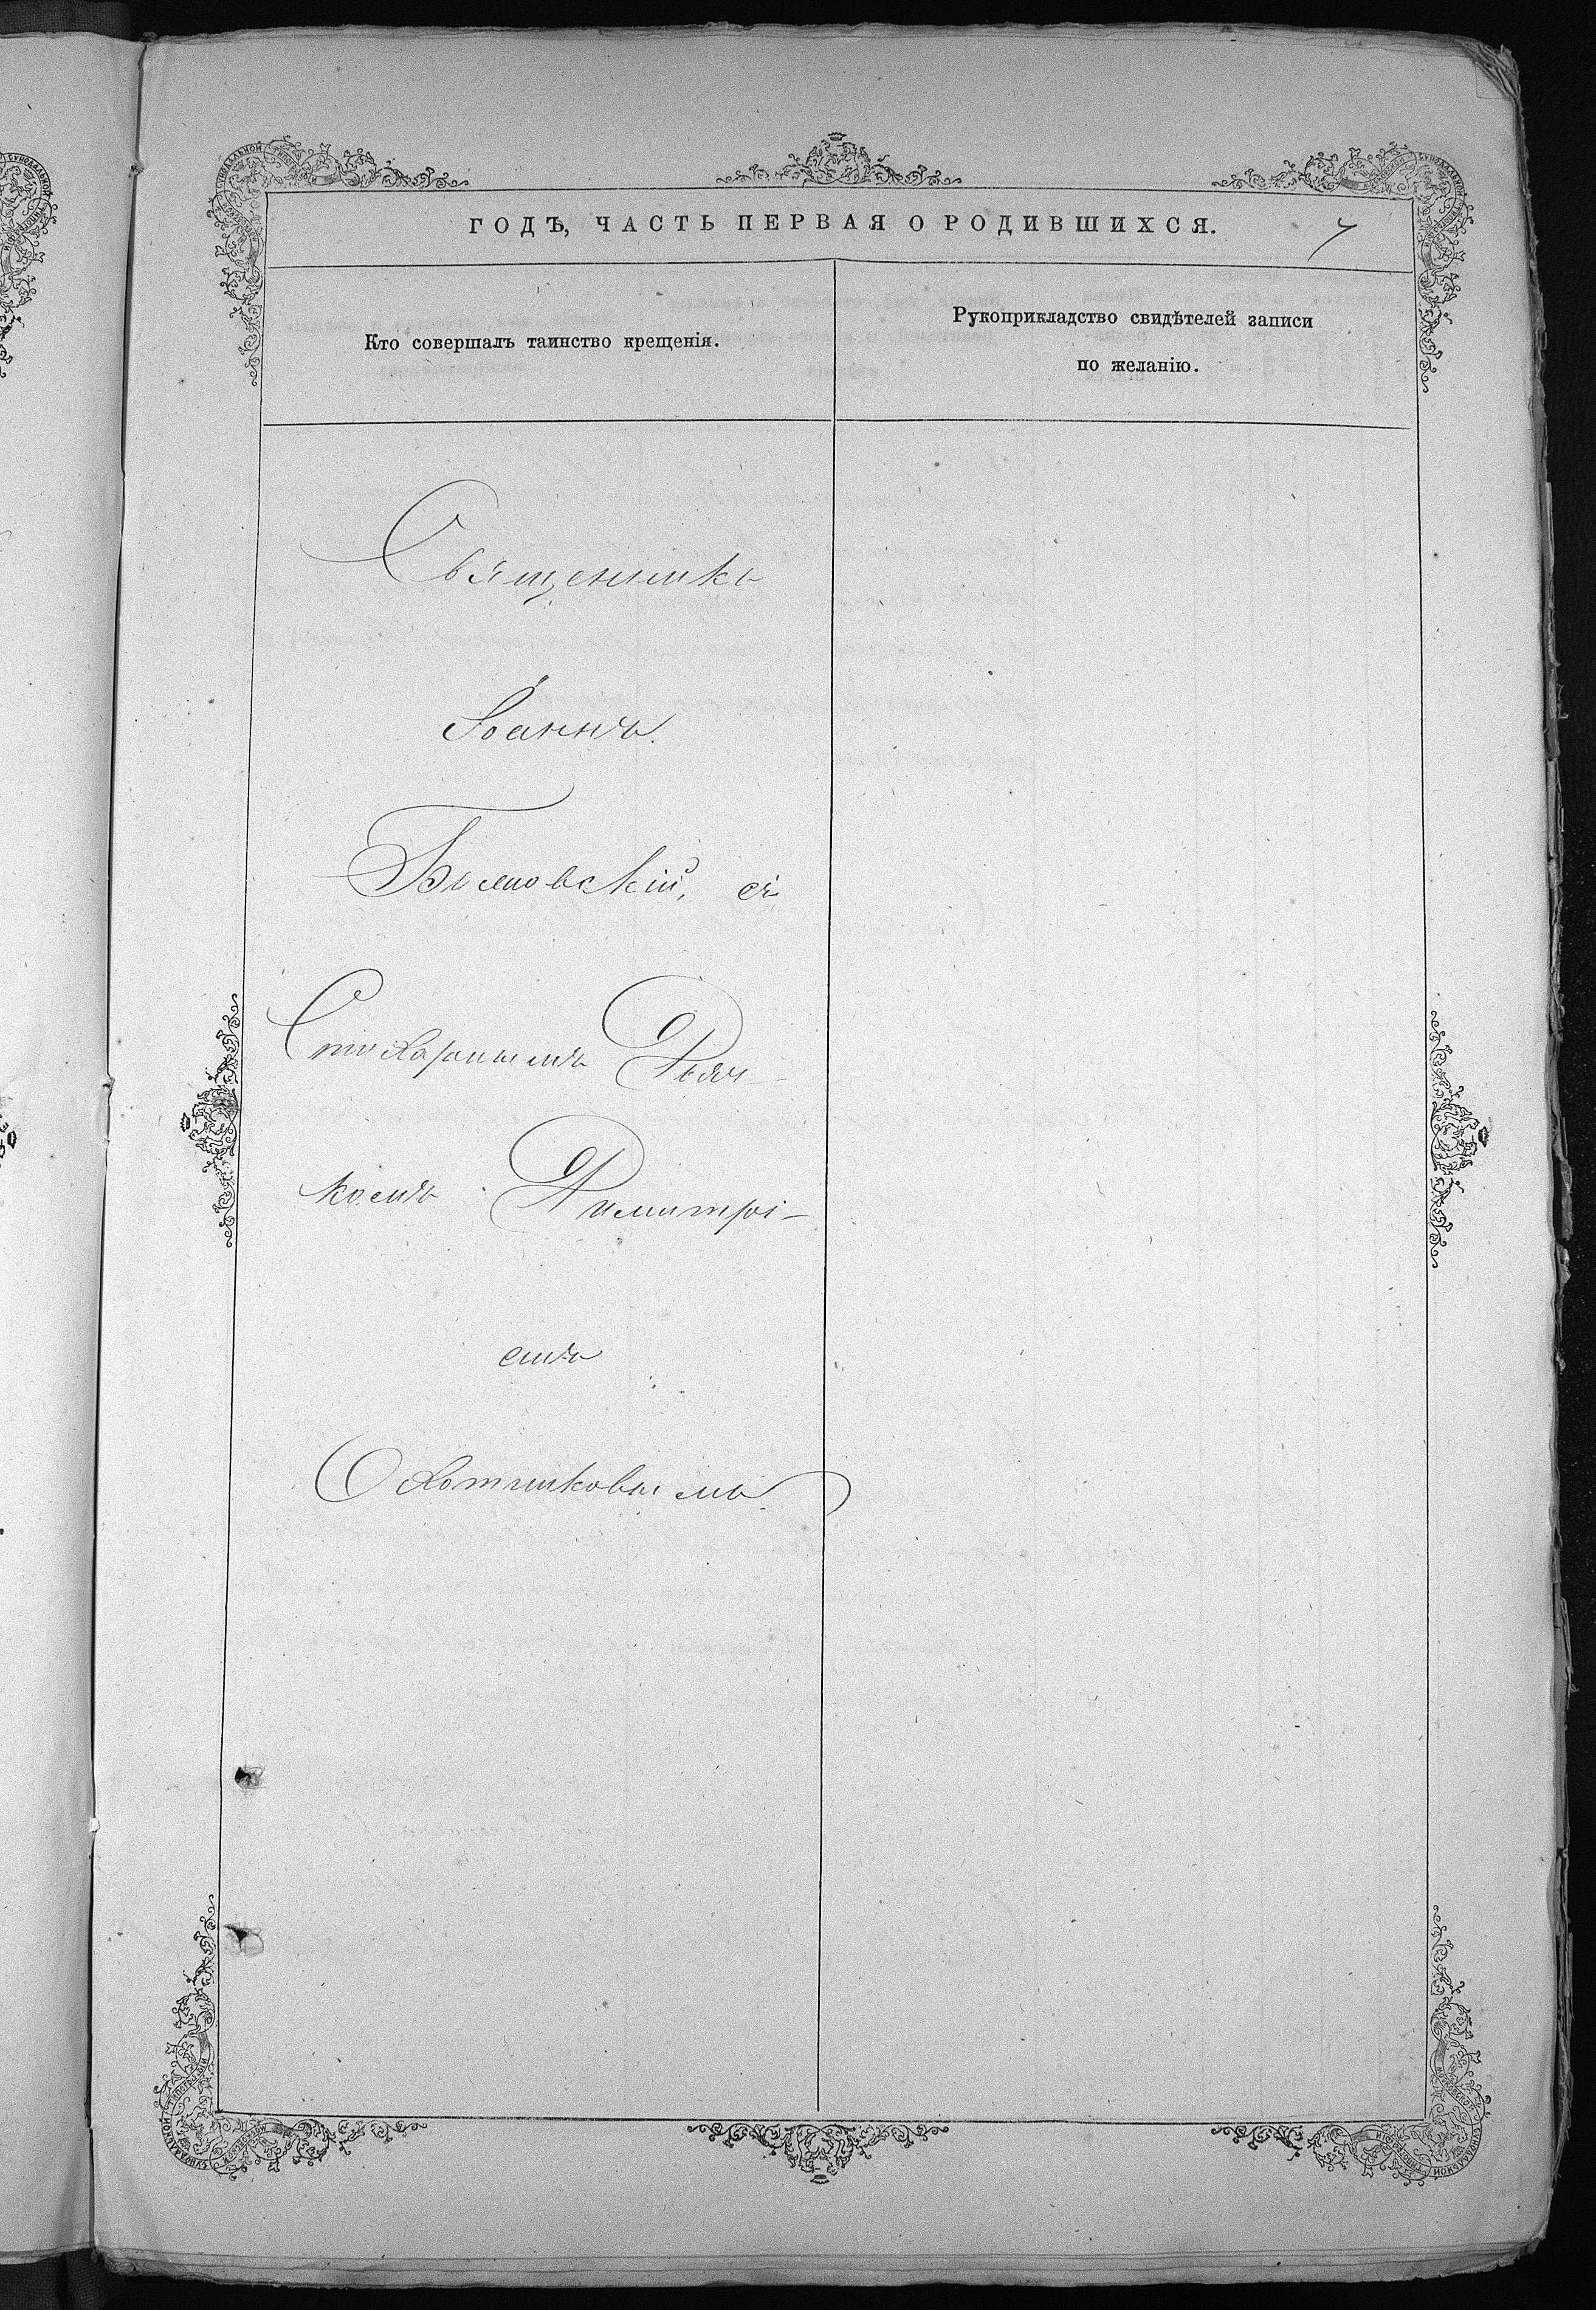 ГОДЪ, ЧАСТЬ ПЕРВАЯ О РОДИВШИХСЯ.
7
Кто совершалъ таинство крещенія.
Рукоприкладство свидѣтелей записи
по желанію.
Священникъ
Іоаннъ
съ
Дьяч-
комъ Димитрі-
емъ
Охотниковымъ